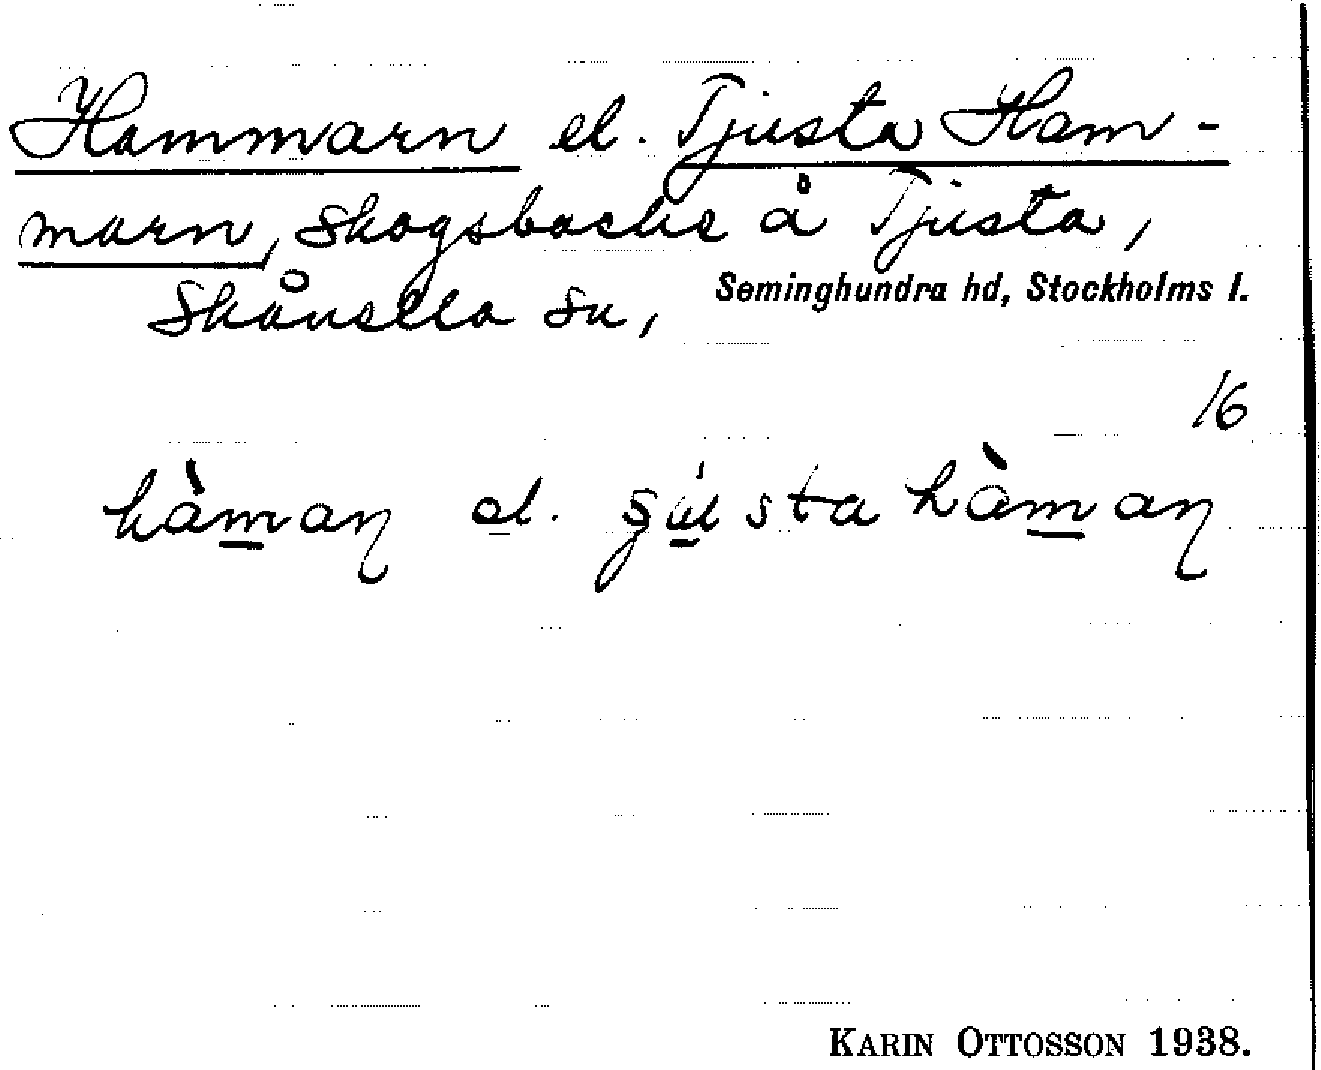 Hammarn el. Tjusta Ham-
marn, Skogsbacke å Tjusta,
Skånella sn, Seminghundra hd, Stockholms l.
16
hàman el.
KARIN OTTOSSON 1938.